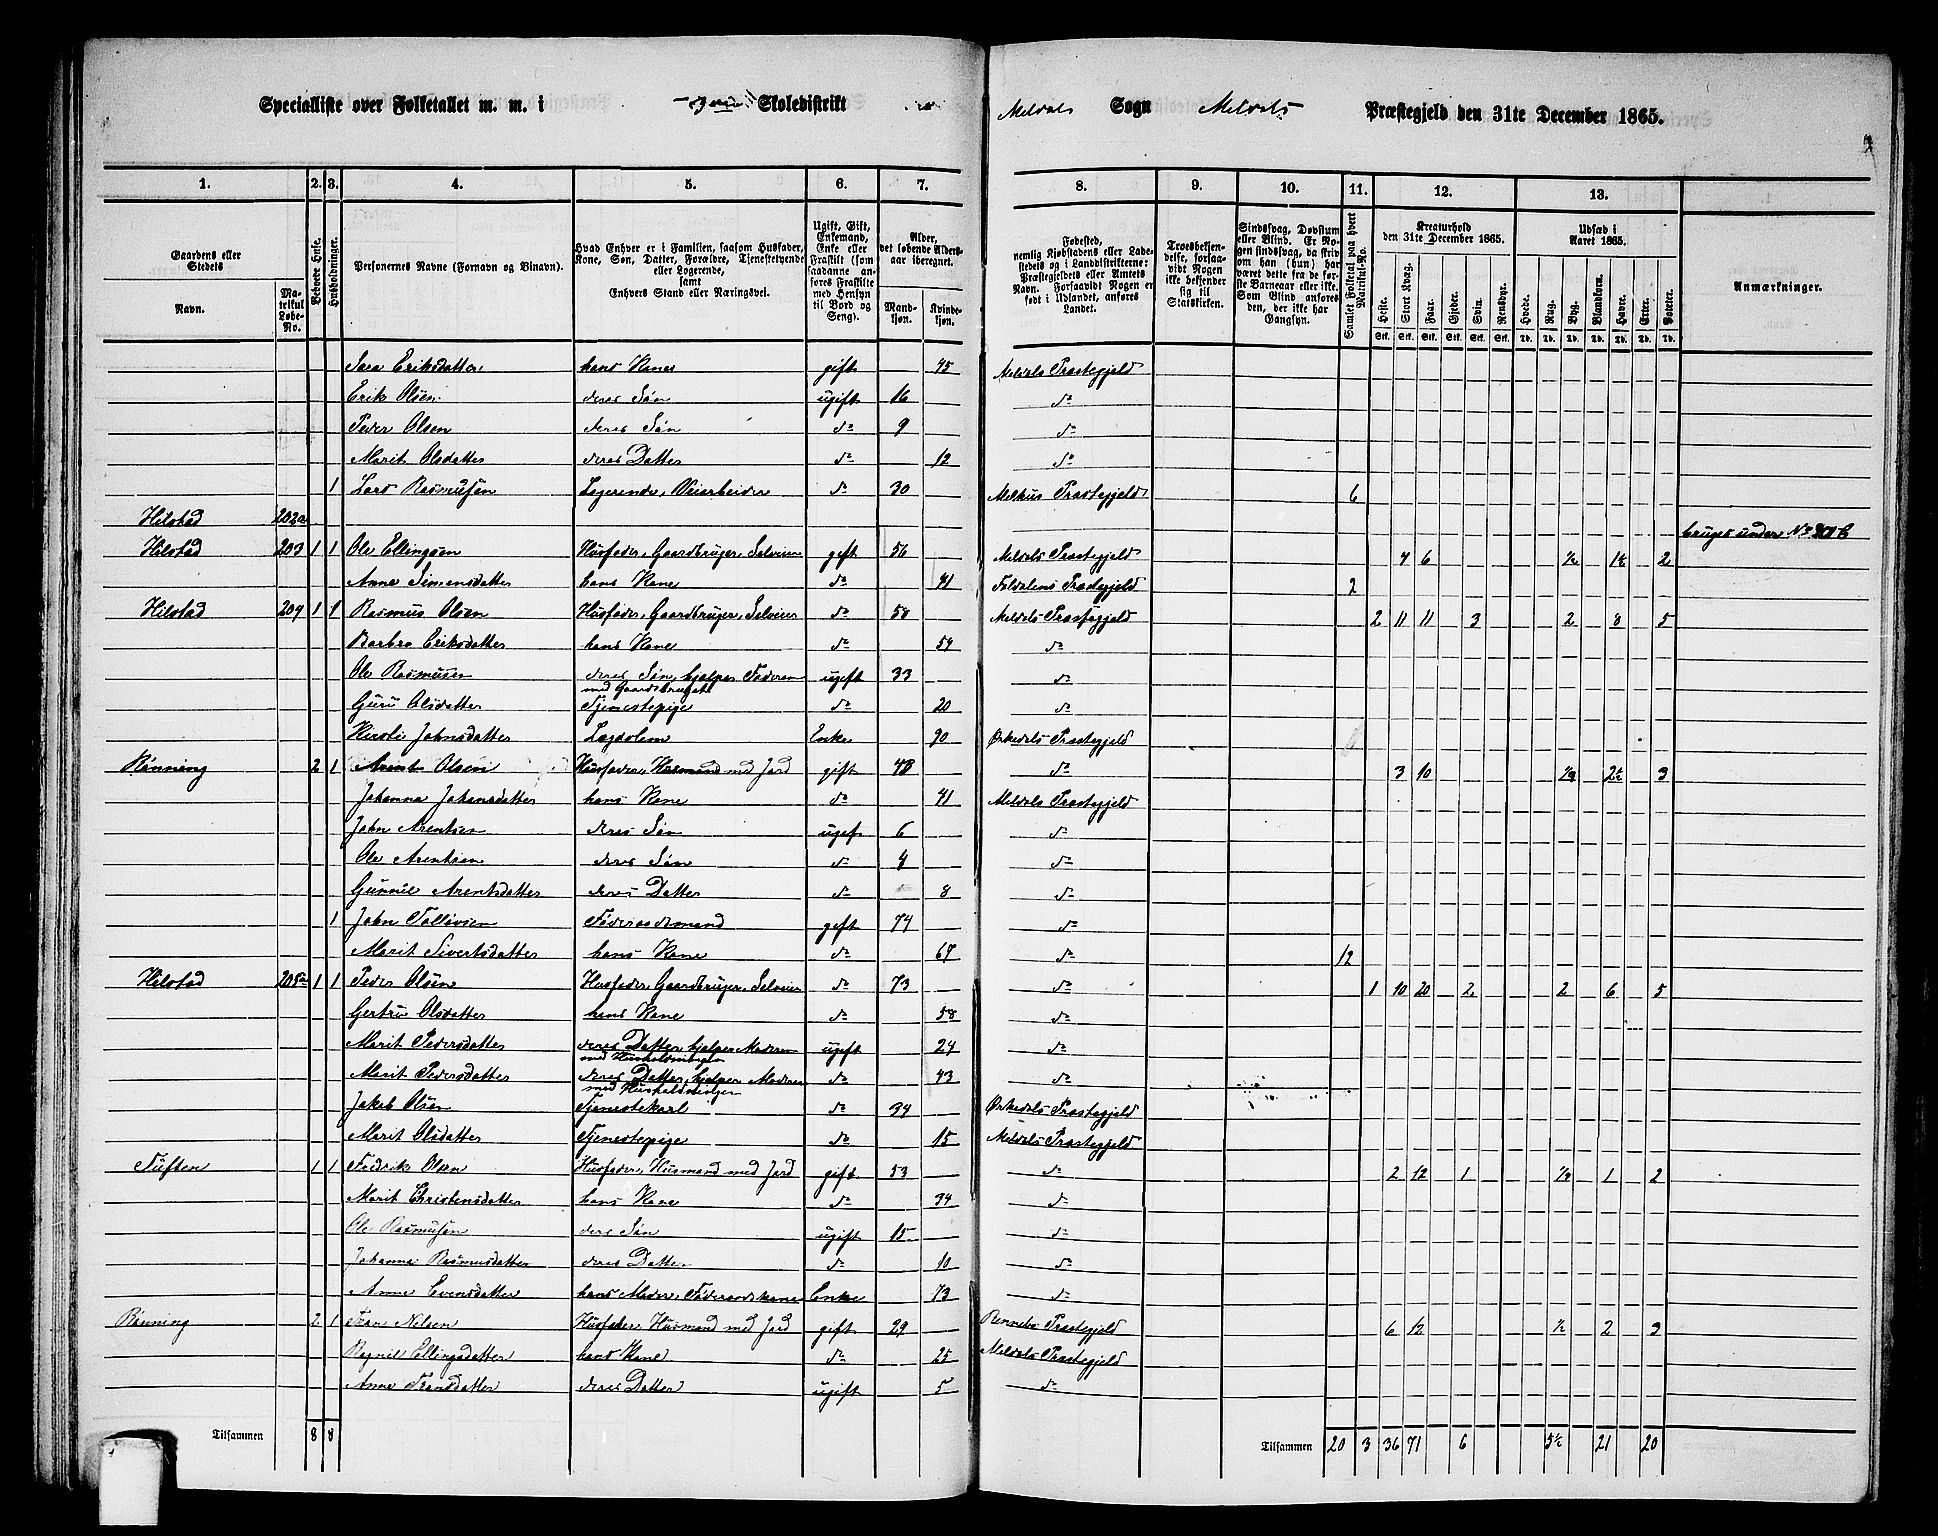 Specialliste over Folketallet m. m. i Skoledistrikt Meldals Sogn Meldals Præstegjeld den 31te December 1865.
1. 2. 3. 4. 5. 6. 7. 8. 9. 10. 11. 12. 13.
Gaardens eller Stedets
Navn.
Matrikul Løbe-No.
Beboede Huse.
Husholdninger.
Personernes Navne (Fornavn og Binavn).
Hvad Enhver er i Familien, saasom Husfader, Kone, Søn, Datter, Forældre, Tjenestetyende eller Logerende, samt Enhvers Stand eller Næringsvei.
Ugift, Gift, Enkemand, Enke eller Fraskilt (som saadanne anføres Fraskilte med Hensyn til Bord og Seng).
Alder, det løbende Aldersaar iberegnet.
Mandkjøn. Kvindekjøn.
Fødested, nemlig Kjøbstadens eller Ladestedets og i Landdistrikterne: Præstegjeldets eller Amtets Navn. Forsaavidt Nogen er født i Udlandet, anføres Landet.
Troesbekjendelse, forsaavidt Nogen ikke bekjender sig til Statskirken.
Sindssvag, Døvstum eller Blind. Er Nogen sindssvag, da skrives om han (hun) har været dette fra de første Barneaar eller ikke. Som Blind anføres den, der ikke har Gangsyn.
Samlet Folketal paa hvert Matrikul-No.
Kreaturhold den 31te December 1865.
Heste. Stort Kvæg. Faar. Gjeder. Svin. Rensdyr.
Udsæd i Aaret 1865.
Hvede. Rug. Byg. Blandkorn. Havre. Erter. Poteter.
Anmærkninger.
Sara Eriksdatter hans Kone gift 45 Meldals Præstegjeld
Erik Olsen deres Søn ugift 16 do
Peder Olsen deres Søn do 9 do
Marit Olsdatter deres Datter do 12 do
1 Lars Rasmusen Logerende, Veiarbeider do 30 Melhus Præstegjeld 6
Hilstad 202a bruges under No
Hilstad 203 1 1 Ole Ellingsen Husfader, Gaardbruger, Selveier gift 56 Meldals Præstegjeld 4 6 ½ 1½ 2
Anne Simonsdatter hans Kone do 41 Foldalens Præstegjeld 2
Hilstad 204 1 1 Rasmus Olsen Husfader, Gaardbruger, Selveier do 58 Meldals Præstegjeld 2 11 11 3 2 8 5
Barbro Eriksdatter hans Kone do 54 do
Ole Rasmusen deres Søn, hjelper Faderen med Gaardsbruget ugift 33 do
Guru Olsdatter Tjenestepige do 20 do
Kirsti Johnsdatter Lægdslem Enke 90 Ørkedals Præstegjeld
Rønning 2 1 Arent Olsen Husfader, Husmand med Jord gift 48 do 3 10 2½ 3
Johanna Johansdatter hans Kone do 41 Meldals Præstegjeld
John Arentsen deres Søn ugift 6 do
Ole Arentsen deres Søn do 4 do
Gunnil Arentsdatter deres Datter do 8 do
1 John Tollevsen Føderaadsmand gift 74 do
Marit Sivertsdatter hans Kone do 67 do 12
Hilstad 205a 1 1 Peder Olsen Husfader, Gaardbruger, Selveier do 73 do 1 10 20 2 2 6 5
Gertru Olsdatter hans Kone do 58 do
Marit Pedersdatter deres Datter, hjelper Moderen med Husholdningen ugift 24 do
Marit Pedersdatter deres Datter, hjelper Moderen med Husholdningen do 43 do
Jakob Olsen Tjenestekarl do 34 Ørkedals Præstegjeld
Marit Olsdatter Tjenestepige do 15 Meldals Præstegjeld
Tuften 1 1 Fredrik Olsen Husfader, Husmand med Jord gift 53 do 2 12 1 1 2
Marit Christensdatter hans Kone do 34 do
Ole Rasmusen deres Søn ugift 15 do
Johanna Rasmusdatter deres Datter do 10 do
Anne Evensdatter hans Moder, Føderaadskone Enke 73 do
Rønning 2 1 Tron Nilsen Husfader, Husmand med Jord gift 29 Rennebo Præstegjeld 6 12 ½ 2 3
Ragnil Ellingsdatter hans Kone do 25 Meldals Præstegjeld
Anne Tronsdatter deres Datter ugift 5 do
Tilsammen 8 8 Tilsammen 20 3 36 71 6 5½ 21 20